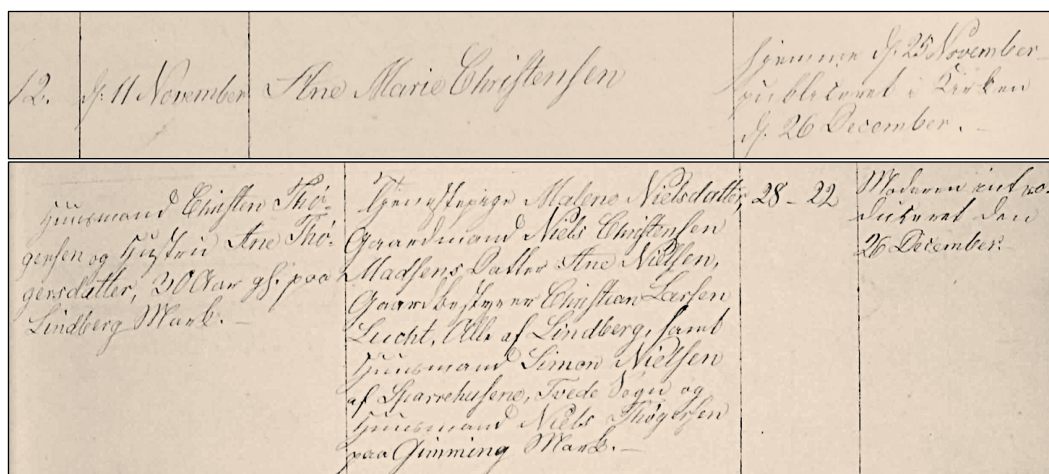 12.
d. 11 November
Ane Marie Christensen
hjemme d. 25 November
publiceret i Kirken
d. 26 December. -
Huusmand Christen Thø-
gersen og Hustru Ane Thø-
gersdatter, 30 Aar gl. paa
Lindberg Mark. -
Tjenestepige Malene Nielsdatter,
Gaardmand Niels Christensen
Madsens Datter Ane Nielsen,
Gaardbestyrer Christian Larsen
Lucht, Alle af Lindberg, samt
Huusmand Simon Nielsen
af Sparrehusene, Tvede Sogn og
Huusmand Niels Thøgersen
paa Gimming Mark. -
28 - 22
Moderen intro-
duceret den
26 December. -